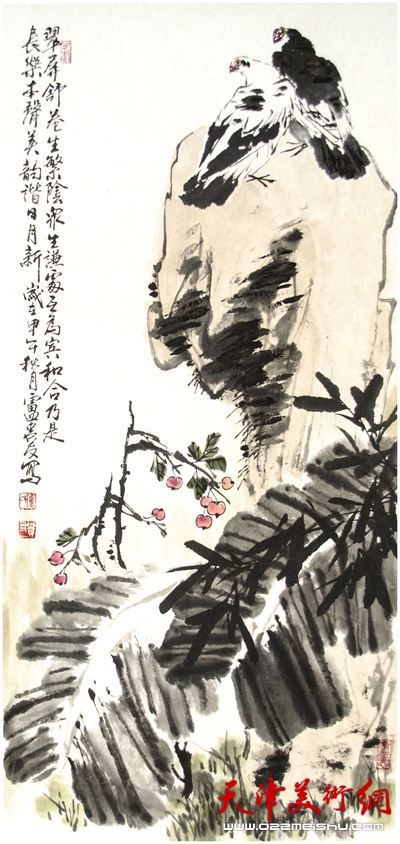 翠屏舒卷生繁陰眾生謙處互為賓和合乃是
長樂本聲美韵諧日月新 歲在甲午秋月 寫
天津美術網
www.022meishu.com